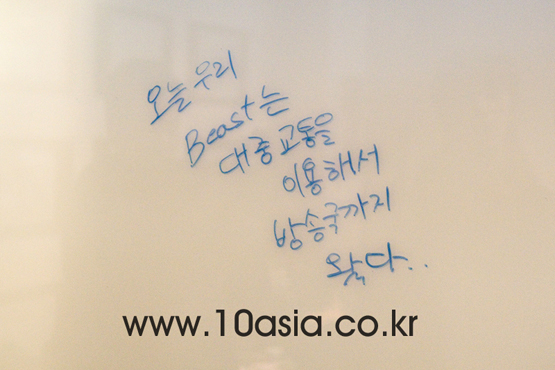 오늘 우리
Beast는
대중교통을
이용해서
방송국까지
왔다..
www.10asia.co.kr